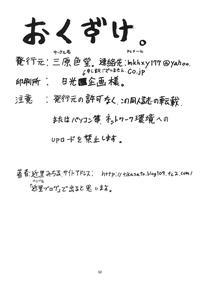 おくずけ。
サークル名
発行元：三原色堂。連絡先：mkhxy177@yahoo.
co.jp
印刷所：日光企画様。
注意：発行元の許可なく、この同人誌の転載、
またはパソコン等、ネットワーク環境への
upロードを禁止します。
サイトアドレス：http://tikasato.blog109.fc2.com/
で出ると思います。